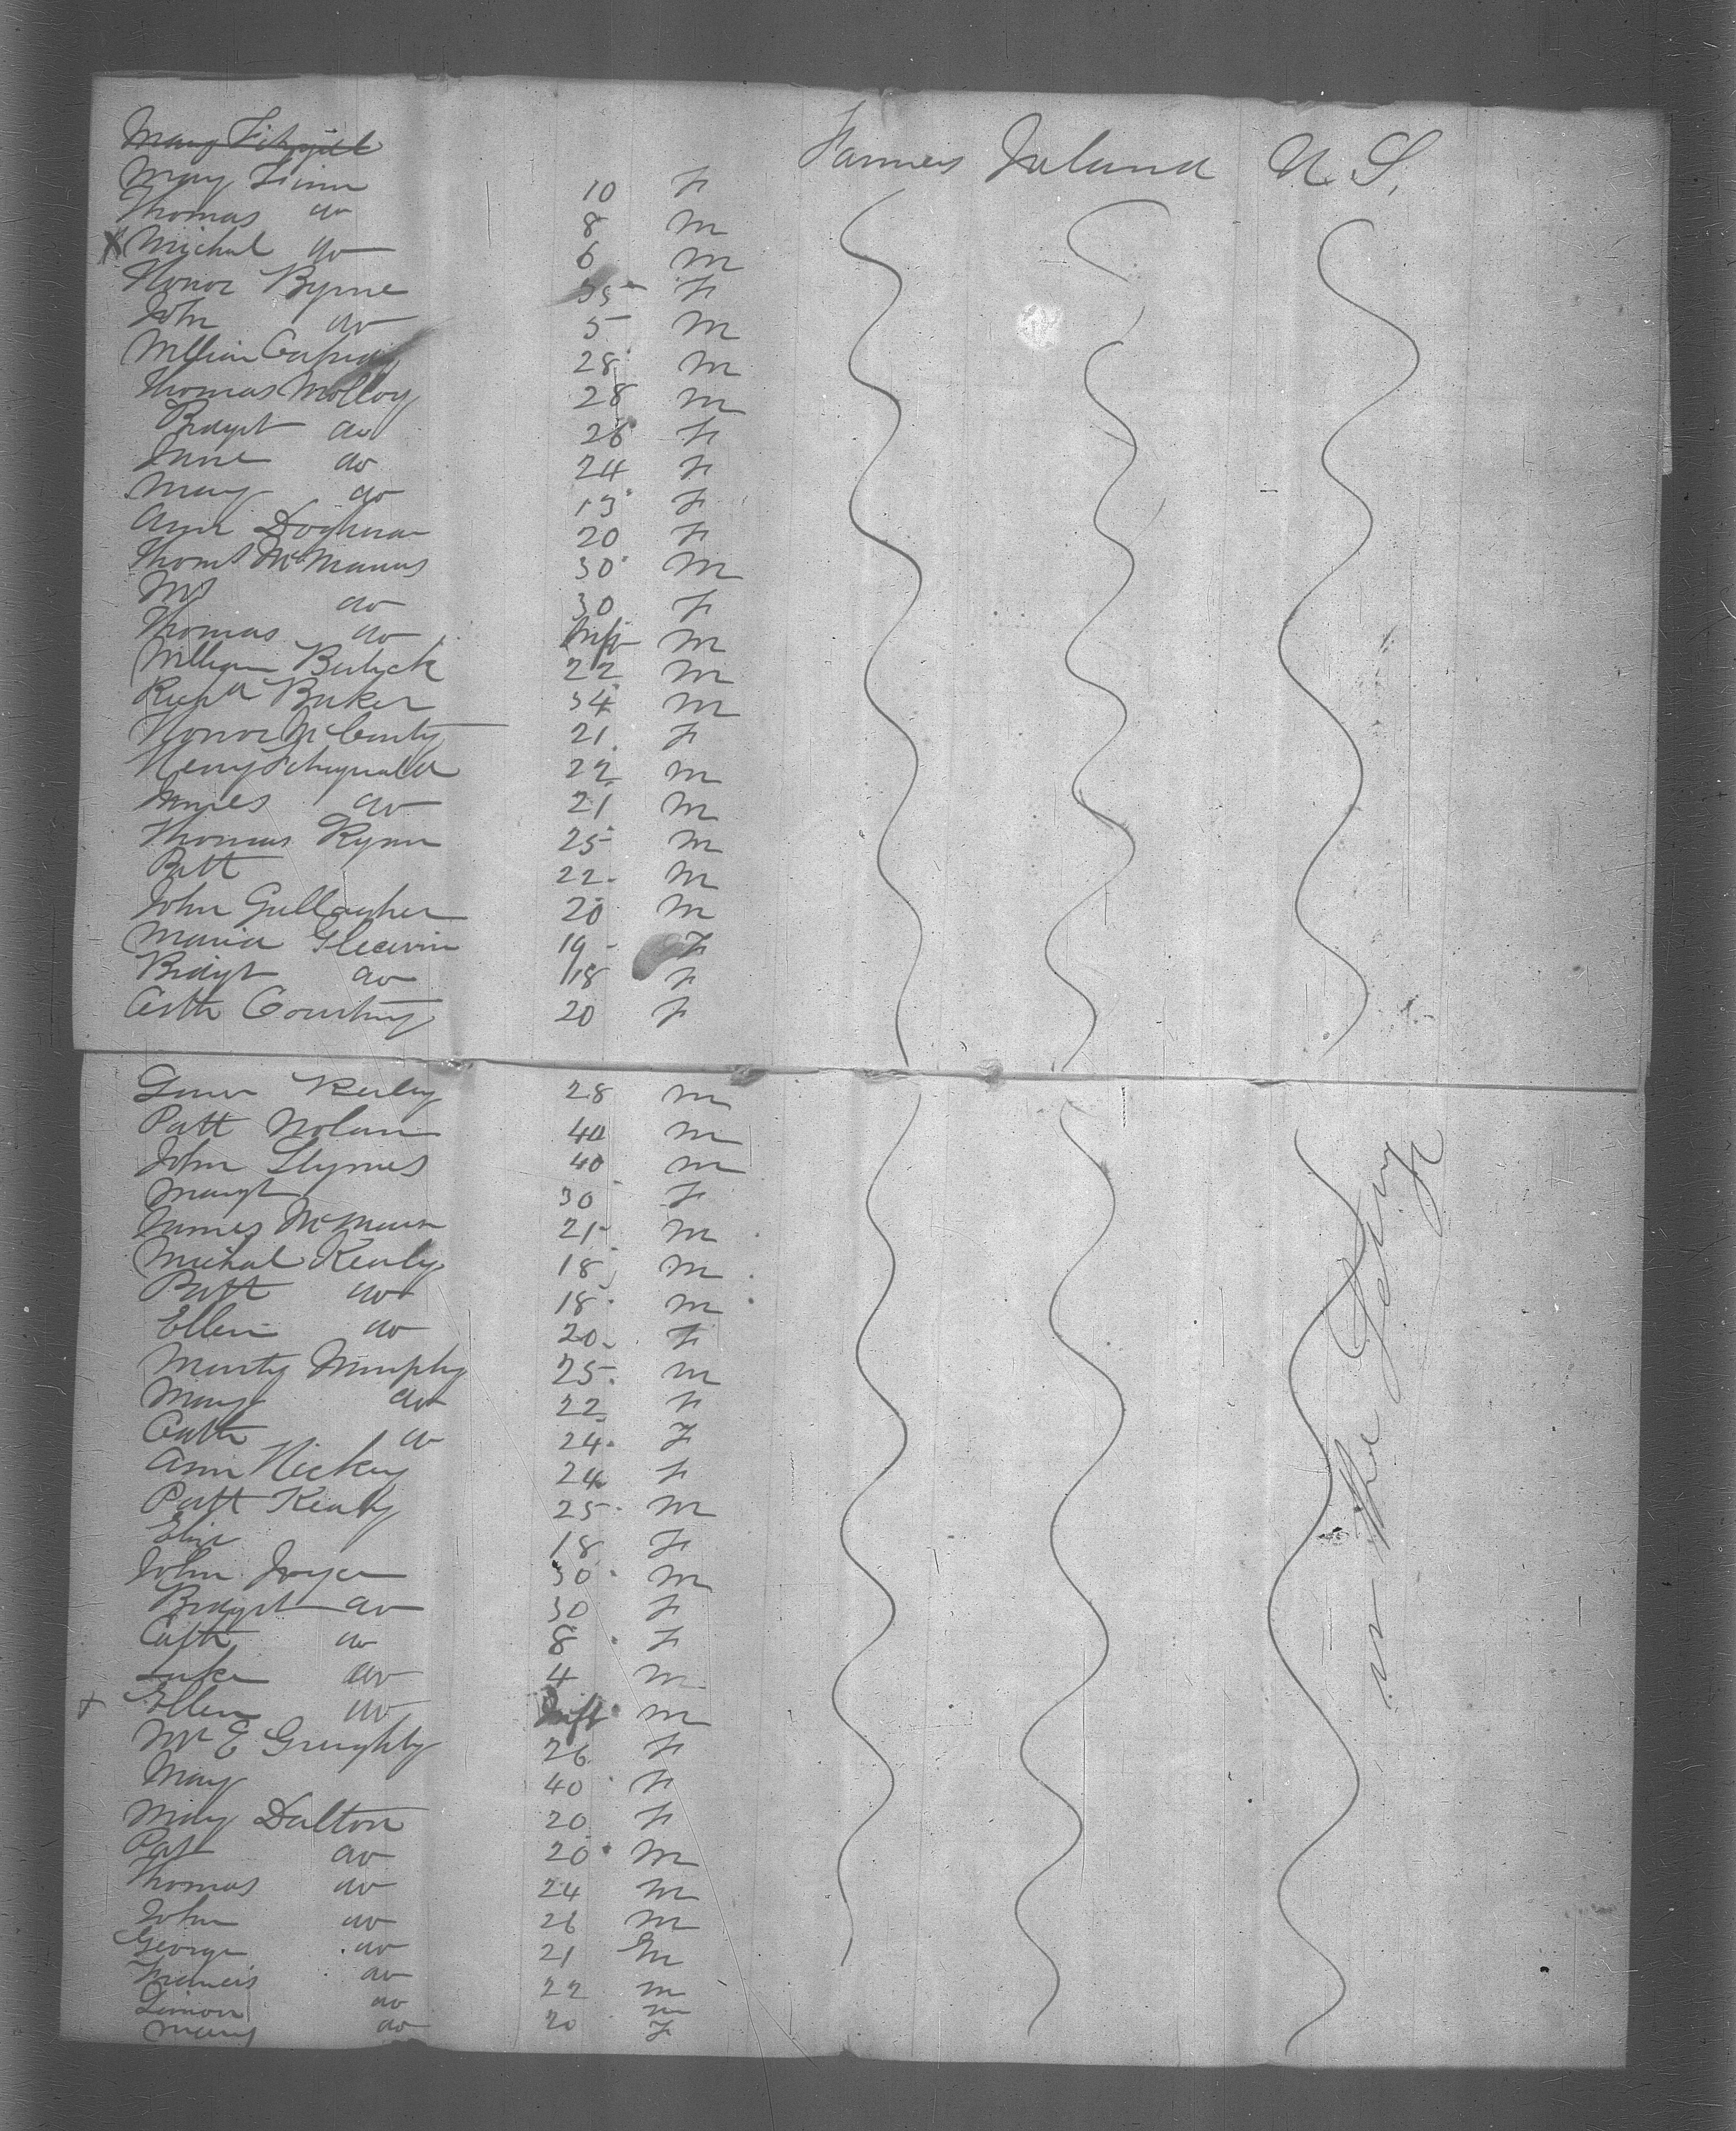 Farmers Ireland U. S.
Mary
Mary 10 F
Thomas do 8 M
X Michal do 6 M
Honor Byrne 35 F
John do 5 M
William 28 M
Thomas Molloy 28 M
Bridgt do 26 F
Jane do 24 F
Mary do 19 F
Ann 20 F
Thoms McManus 30 M
Mrs do 30 F
Thomas do Inft M
William 22 M
Richd Baker 34 M
Honor McCarty 21 F
Henry Fitzgerald 22 M
James do 21 M
Thomas Rynn 25 M
Patt 22 M
John Gallagher 20 M
Maria 19 F
Bridgt do 18 F
Cath Courtney 20 F
28 M
Patt Nolan 40 M
John 40 M
Margt 30 F
James 21 M
Michal Kealy 18 M
Patt do 18 M
Ellen do 20 F
Murty Murphy 25 M
Mary do 22 F
Cath do 24 F
Ann Hickey 24 F
Patt Kealy 25 M
Eliz 18 F
John Joyce 30 M
Bridgt do 30 F
Cath do 8 F
Luke do 4 M
+ Ellen do Inft M
Mrs E 26 F
Mary 40 F
Dalton 20 F
Pat do 20 M
Thomas do 24 M
John do 26 M
George do 21 M
Francis do 22 M
Simon do M
Mary do 20 F
the